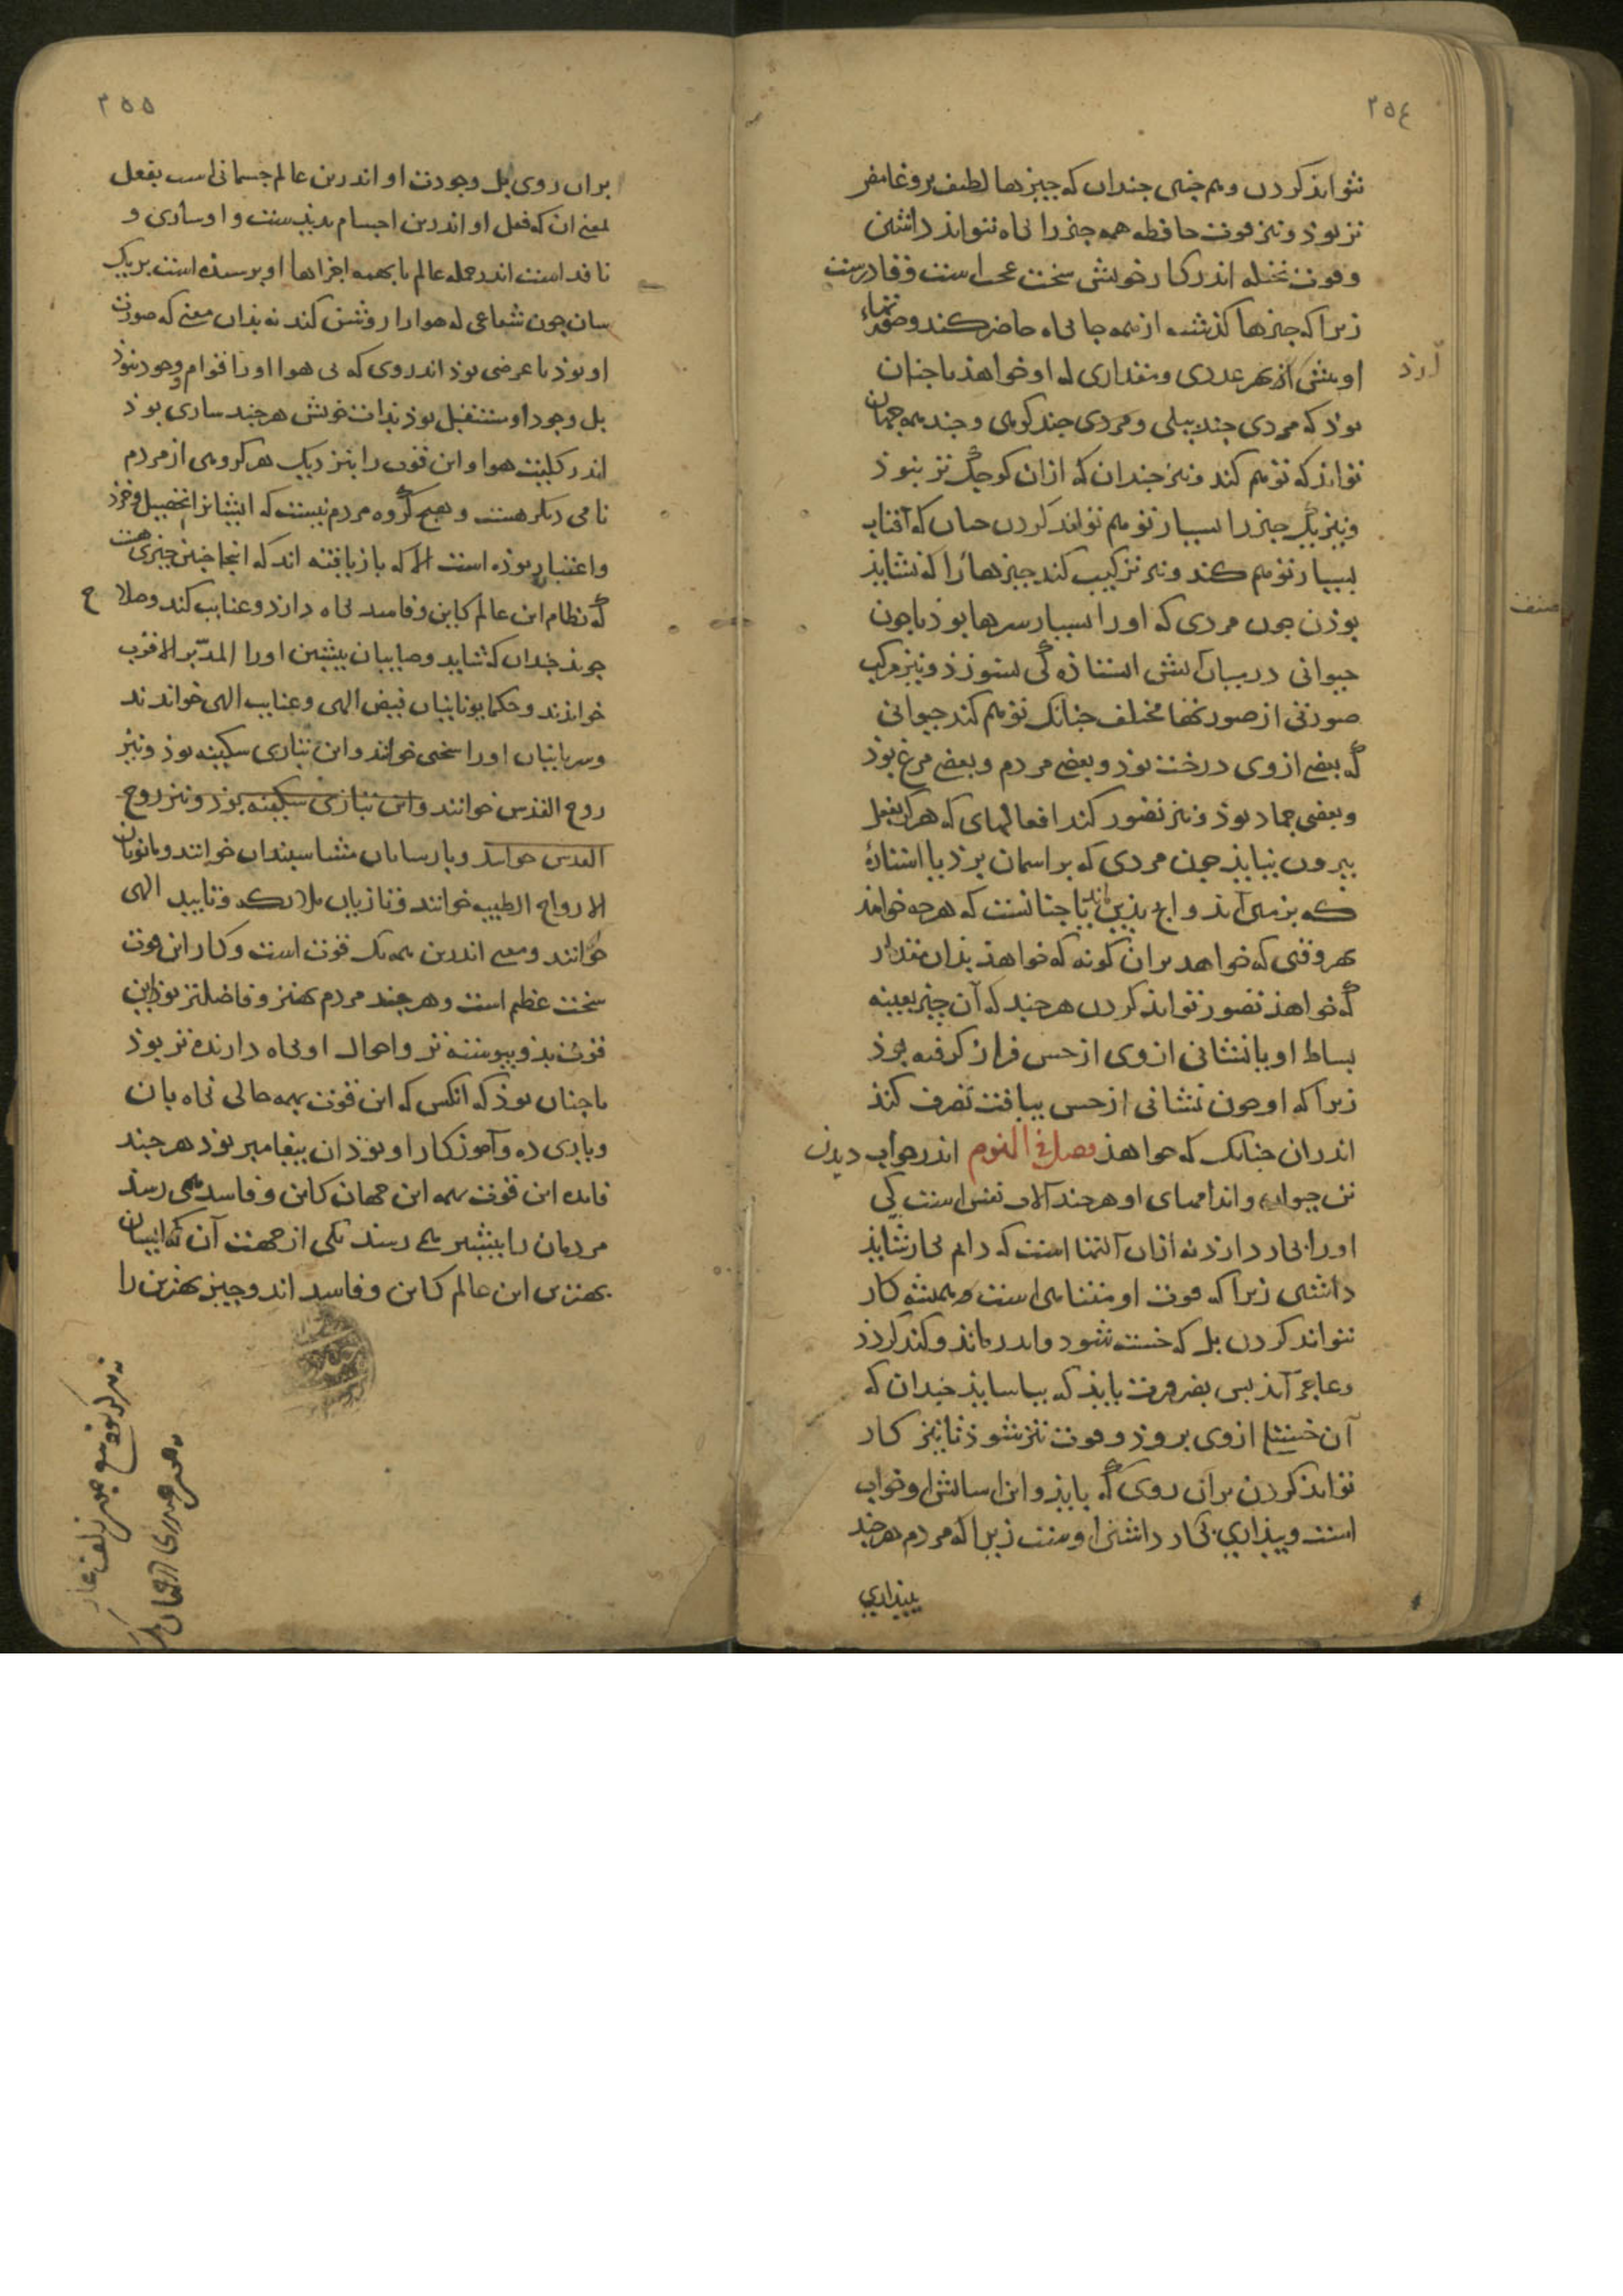 ٢٥٤
نتواند کردن وهم چنین چندان که چیزها لطیف بروغامض
تر بوذ ونیز قوت حافظه همه چیز را نگاه نتواند داشتن
وقوت مخیله اندر کار خویش سخت عجب است وقادرست
زیرا که چیزها گذشته از همه جایگاه حاضر کند وصورتهاء
او پیش آرذ بهر عددی ومقداری که او خواهذ یا چنان
بوذ که مردی چند پیلی ومردی چند کوهی وچند همه جهان
تواند که توهم کند ونیز چندان که ازان کوچک تر نبوذ
ونیز یک چیز را بسیار توهم تواند کردن چنان که آفتاب
بسیار توهم کند ونیز ترکیب کند چیزها را که نشاید
بوذن چون مردی که او را بسیار سرها بوذ یا چون
حیوانی در میان آتش استاذه کی نسوزذ ونیز مرکب
صورتی از صورتها مختلف چنانک توهم کند حیوانی
که بعضی از وی درخت بوذ وبعضی مردم وبعضی مرغ بوذ
وبعضی جماد بوذ ونیز تصور کند افعالهای که هرگز بفعل
بیرون نیاید چون مردی که بر اسمان پرذ یا استارهٔ
که بزمین آید واچ بذین ماند تا چنانست که هرچه خواهذ
بهر وقتی که خواهد بران گونه که خواهذ بذان مقدار
که خواهذ تصور تواند کردن هرچند که آن چیز بعینه
بساط او یا نشانی از وی از حس فراز گرفته بوذ
زیرا که او چون نشانی از حس بیافت تصرف کند
اندران چنانک که خواهذ فصل فی النوم اندر خواب دیدن
تن حیوان واندامهای او هرچند آلات نفس است کی
او را بکار دارذ نه ازان آلتها است که دایم بکار شاید
داشتن زیرا که قوت او متناهی است وهمیشه کار
نتواند کردن بل که خسته شود واندر ماند وکند گردذ
وعاجز آید پس بضرورت باید که بیاساید چندان که
آن خستگی از وی بروذ وقوت تیز شوذ تا نیز کار
تواند کردن بران روی که باید واین اسایش او خواب
است وبیداری بکار داشتن اوست زیرا که مردم هرچند
بیداری
آرذ
صنف
٢٥٥
بران روی بل وجودت او اندرین عالم جسمانی است بفعل
بمعنی ان که فعل او اندرین اجسام پدیدست واو ساری و
نافد است اندر جمله عالم با بهمه اجزاها او برسیده است بر یک
سان چون شعاعی که هوا را روشن کند نه بذان معنی که صورت
او بوذ یا عرضی بوذ اندر وی که بی هوا او را قوام ووجود نبوذ
بل وجود او مستقبل بوذ بذات خویش هرچند ساری بوذ
اندر کلیت هوا واین قوت را بنزدیک هر گروهی از مردم
نامی دیگر هست وهیچ گروه مردم نیست که ایشانرا تحصیل وخرد
واعتبار بوذه است الا که بازیافته اند که اینجا چنین چیزی هست
که نظام این عالم کاین وفاسد نگاه دارذ وعنایت کند وصلاح
جوید چندان که شاید وصابیان پیشین اورا المدبر الاقرب
خوانذند وحکما یونانیان فیض الهی وعنایت الهی خواندند
وسریانیان اورا سخنی خوانند واین بتازی سکینه بوذ ونیز
روح القدس خوانند واین بتازی سکینه بوذ ونیز روح
القدس خوانند وپارسایان مشاسبندان خوانند ومانویان
الارواح الطیبه خوانند وتازیان ملایکه وتایید الهی
خوانند ومعنی اندرین همه یک قوت است وکار این قوت
سخت عظیم است وهرچند مردم بهتر وفاضلتر بوذ این
قوت بذو پیوسته تر واحوال او نگاه دارنده تر بوذ
یا چنان بوذ که آنکس که این قوت بهمه حالی نگاه بان
ویاری ده وآموزگار او بوذ ان پیغامبر بوذ هرچند
فایده این قوت بهمه این جهان کاین وفاسد همی رسذ
مردمان را بیشتر همی رسد یکی از جهت آن که ایشان
بهترین این عالم کاین وفاسد اند وچیز بهترین را